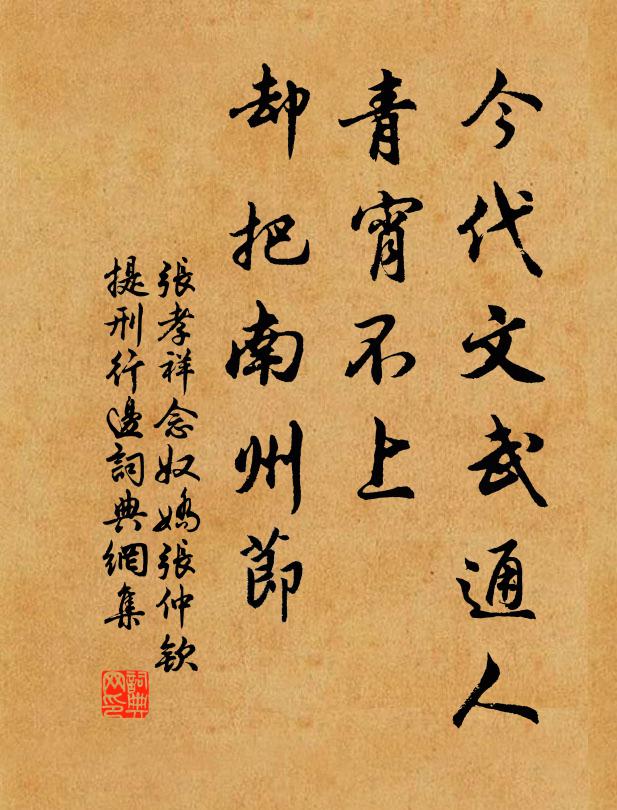 今代文武通人
青霄不上
却把南州節
張孝祥念奴嬌張仲欽
提刑行邊詞典網集
詞典
网印